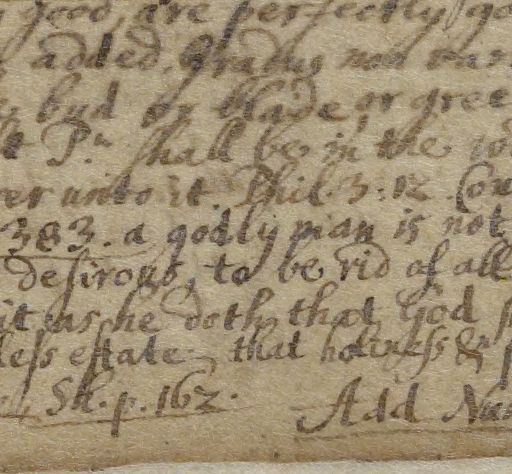 good, are perfectly go
added, Gradus non vari
bud or blade or gree
P.n shall be in the
unto it. Phil. 3:12 Con
383. a godly man is not
desirous, to be rid of all
it as he doth, that God
less estate. that holiness &
Sh. p. 162. Add Nu